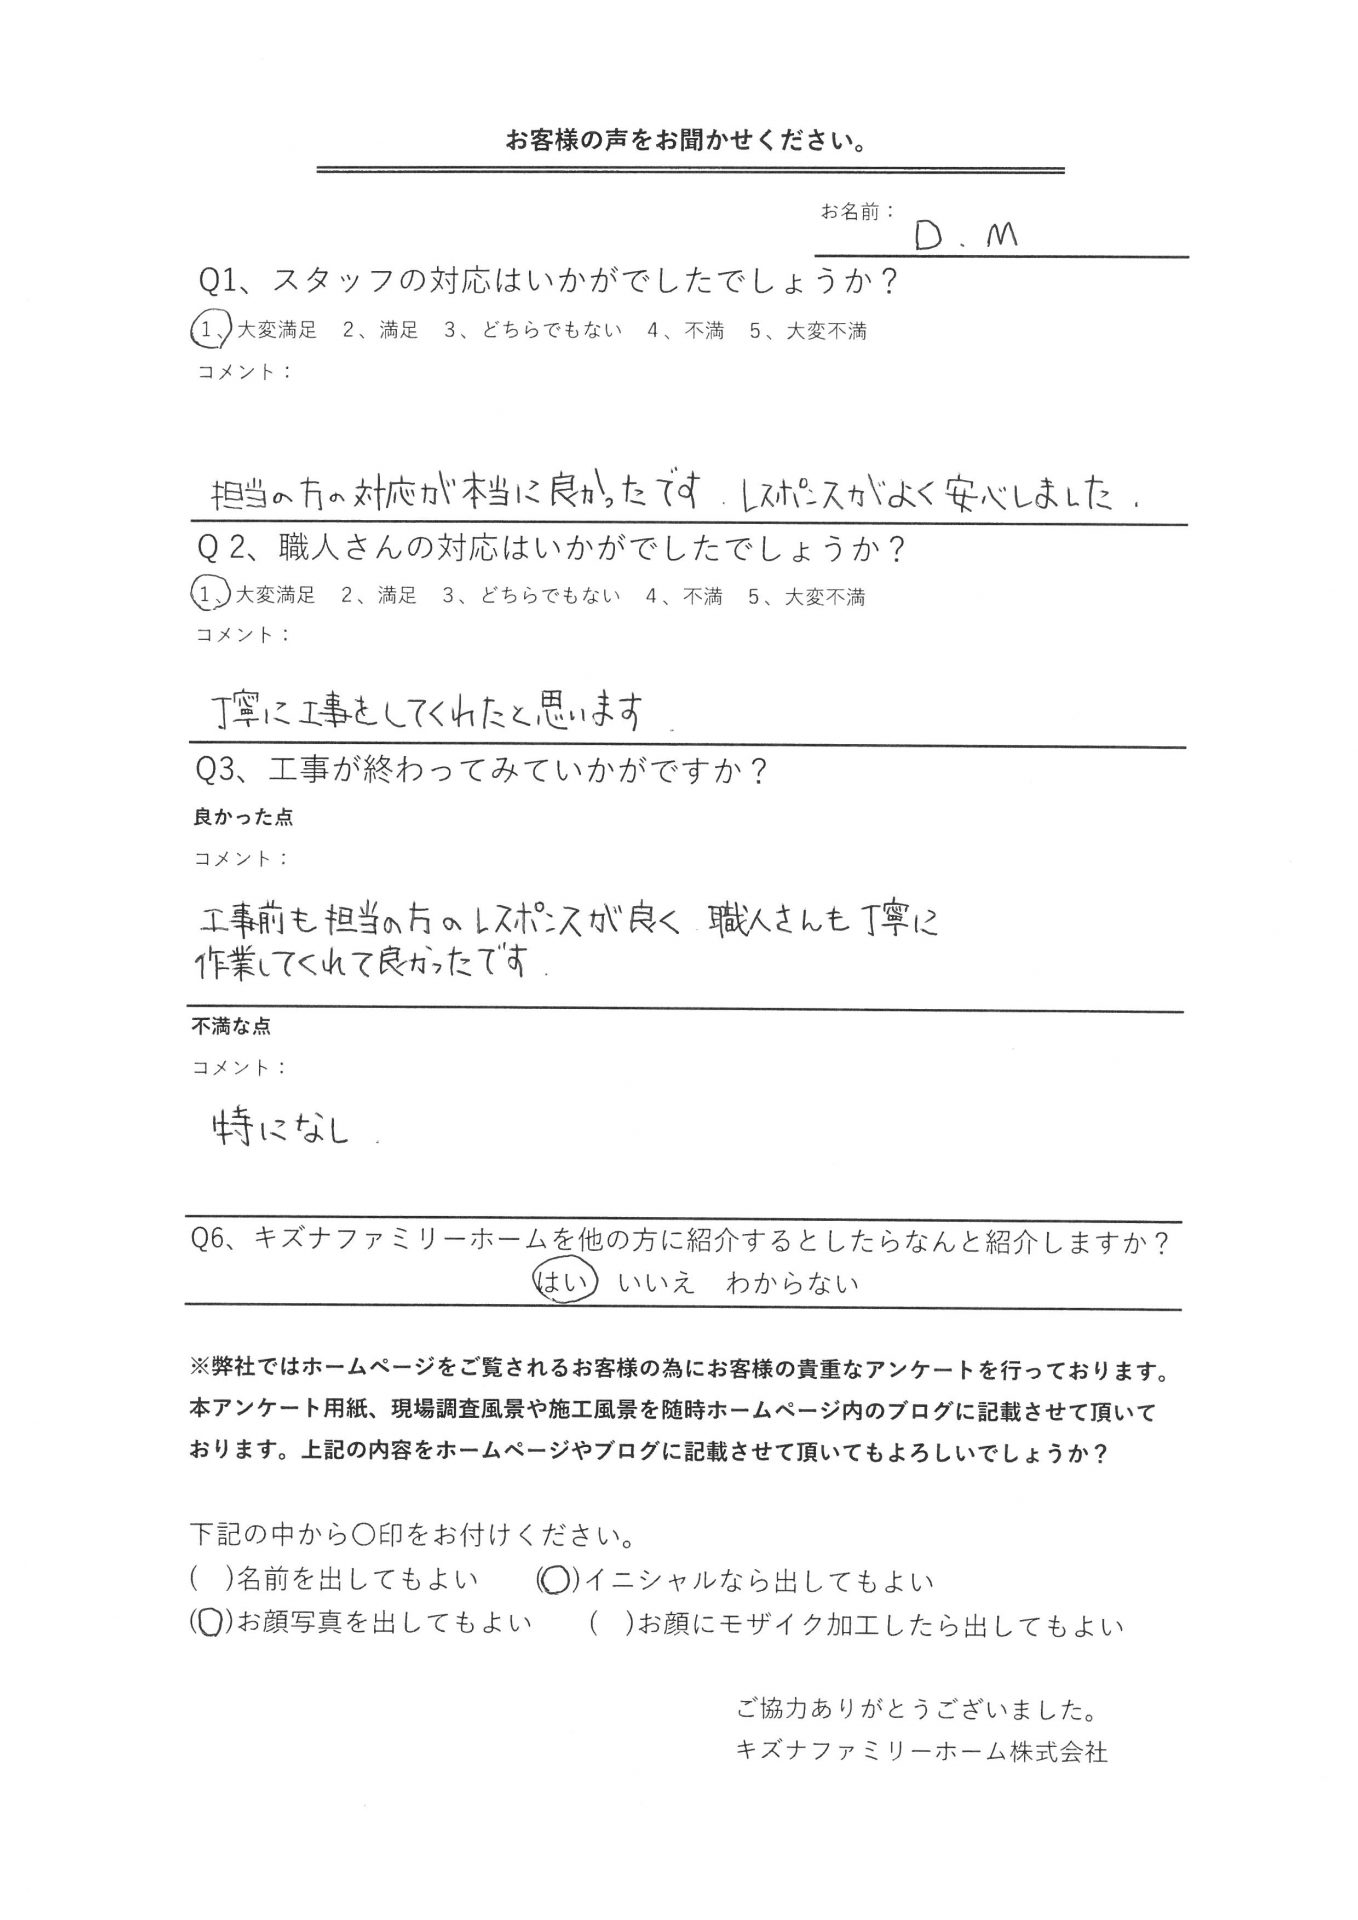 お客様の声をお聞かせください。
お名前：
D.M
Q1、スタッフの対応はいかがでしたでしょうか？
1、大変満足　2、満足　3、どちらでもない　4、不満　5、大変不満
コメント：
担当の方の対応が本当に良かったです.レスポンスがよく安心しました.
Q 2、職人さんの対応はいかがでしたでしょうか？
1、大変満足　2、満足　3、どちらでもない　4、不満　5、大変不満
コメント：
丁寧に工事をしてくれたと思います.
Q3、工事が終わってみていかがですか？
良かった点
コメント：
工事前も担当の方のレスポンスが良く.職人さんも丁寧に
作業してくれて良かったです.
不満な点
コメント：
特になし.
Q6、キズナファミリーホームを他の方に紹介するとしたらなんと紹介しますか？
はい　いいえ　わからない
※弊社ではホームページをご覧されるお客様の為にお客様の貴重なアンケートを行っております。
本アンケート用紙、現場調査風景や施工風景を随時ホームページ内のブログに記載させて頂いて
おります。上記の内容をホームページやブログに記載させて頂いてもよろしいでしょうか？
下記の中から〇印をお付けください。
(　)名前を出してもよい　　(〇)イニシャルなら出してもよい
(〇)お顔写真を出してもよい　　(　)お顔にモザイク加工したら出してもよい
ご協力ありがとうございました。
キズナファミリーホーム株式会社